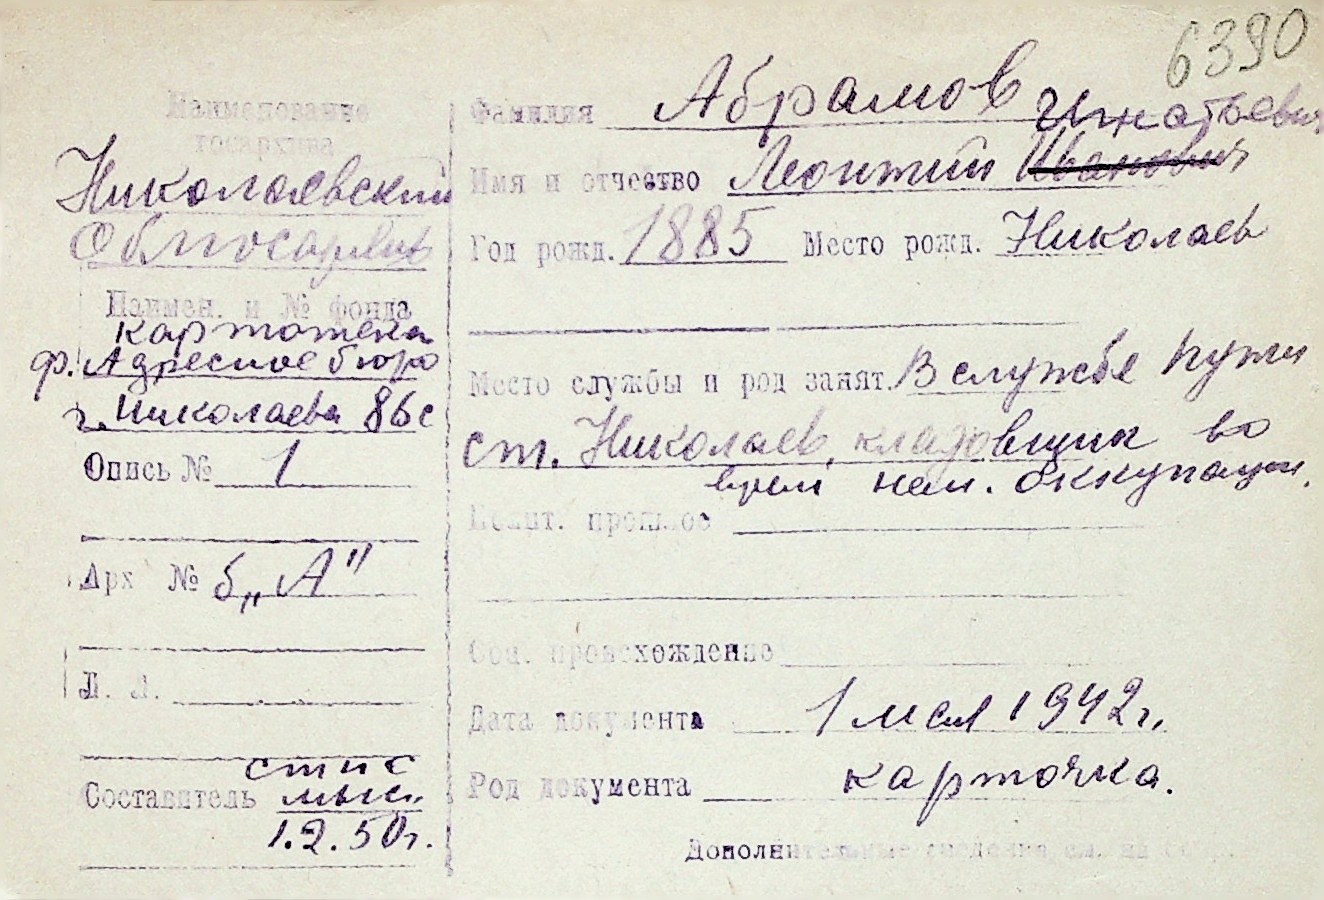 6390
Наименование
госархива
Николаевский
Облгосархив
Наимен. и № фонда
картотека
ф. Адресное бюро
г. Николаева 86с
Опись № 1
Арх № б „А"
Л. Л.
Составитель
1.2.50г.
Фамилия Абрамов
Игнатьевич
Имя и отчество Леонтий Иванович
Год рожд. 1885 Место рожд. Николаев
Место службы и род занят. В службе пути
ст. Николаев, кладовщик во
время нем. оккупации.
Полит. прошлое
Соц. происхождение
Дата документа 1 мая 1942г.
Род документа карточка.
Дополнительные сведения см. на